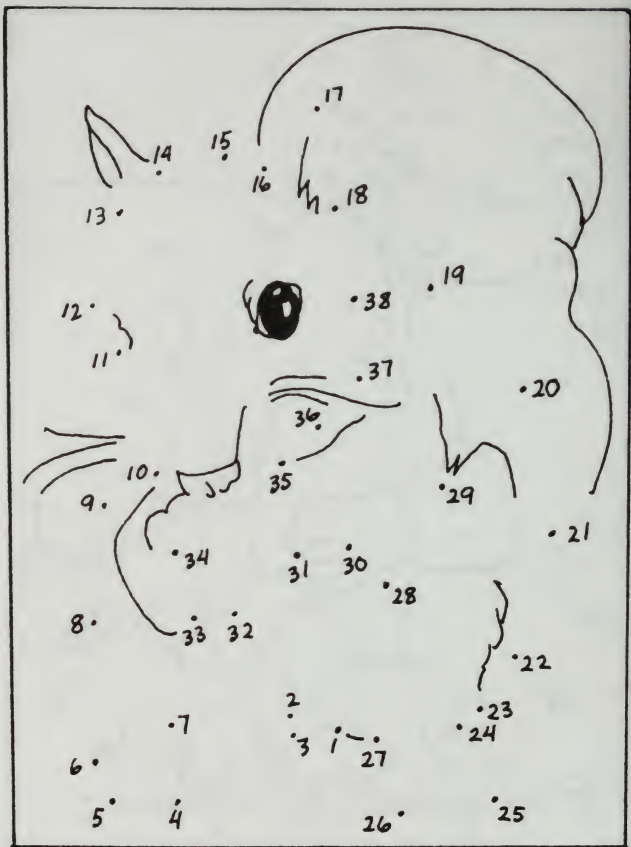 17
15
14
16
18
13
19
38
12
11
37
20
36
10
35
29
9
21
34
31
30
28
8
33
32
22
2
23
7
24
3
1
27
6
5
4
26
25